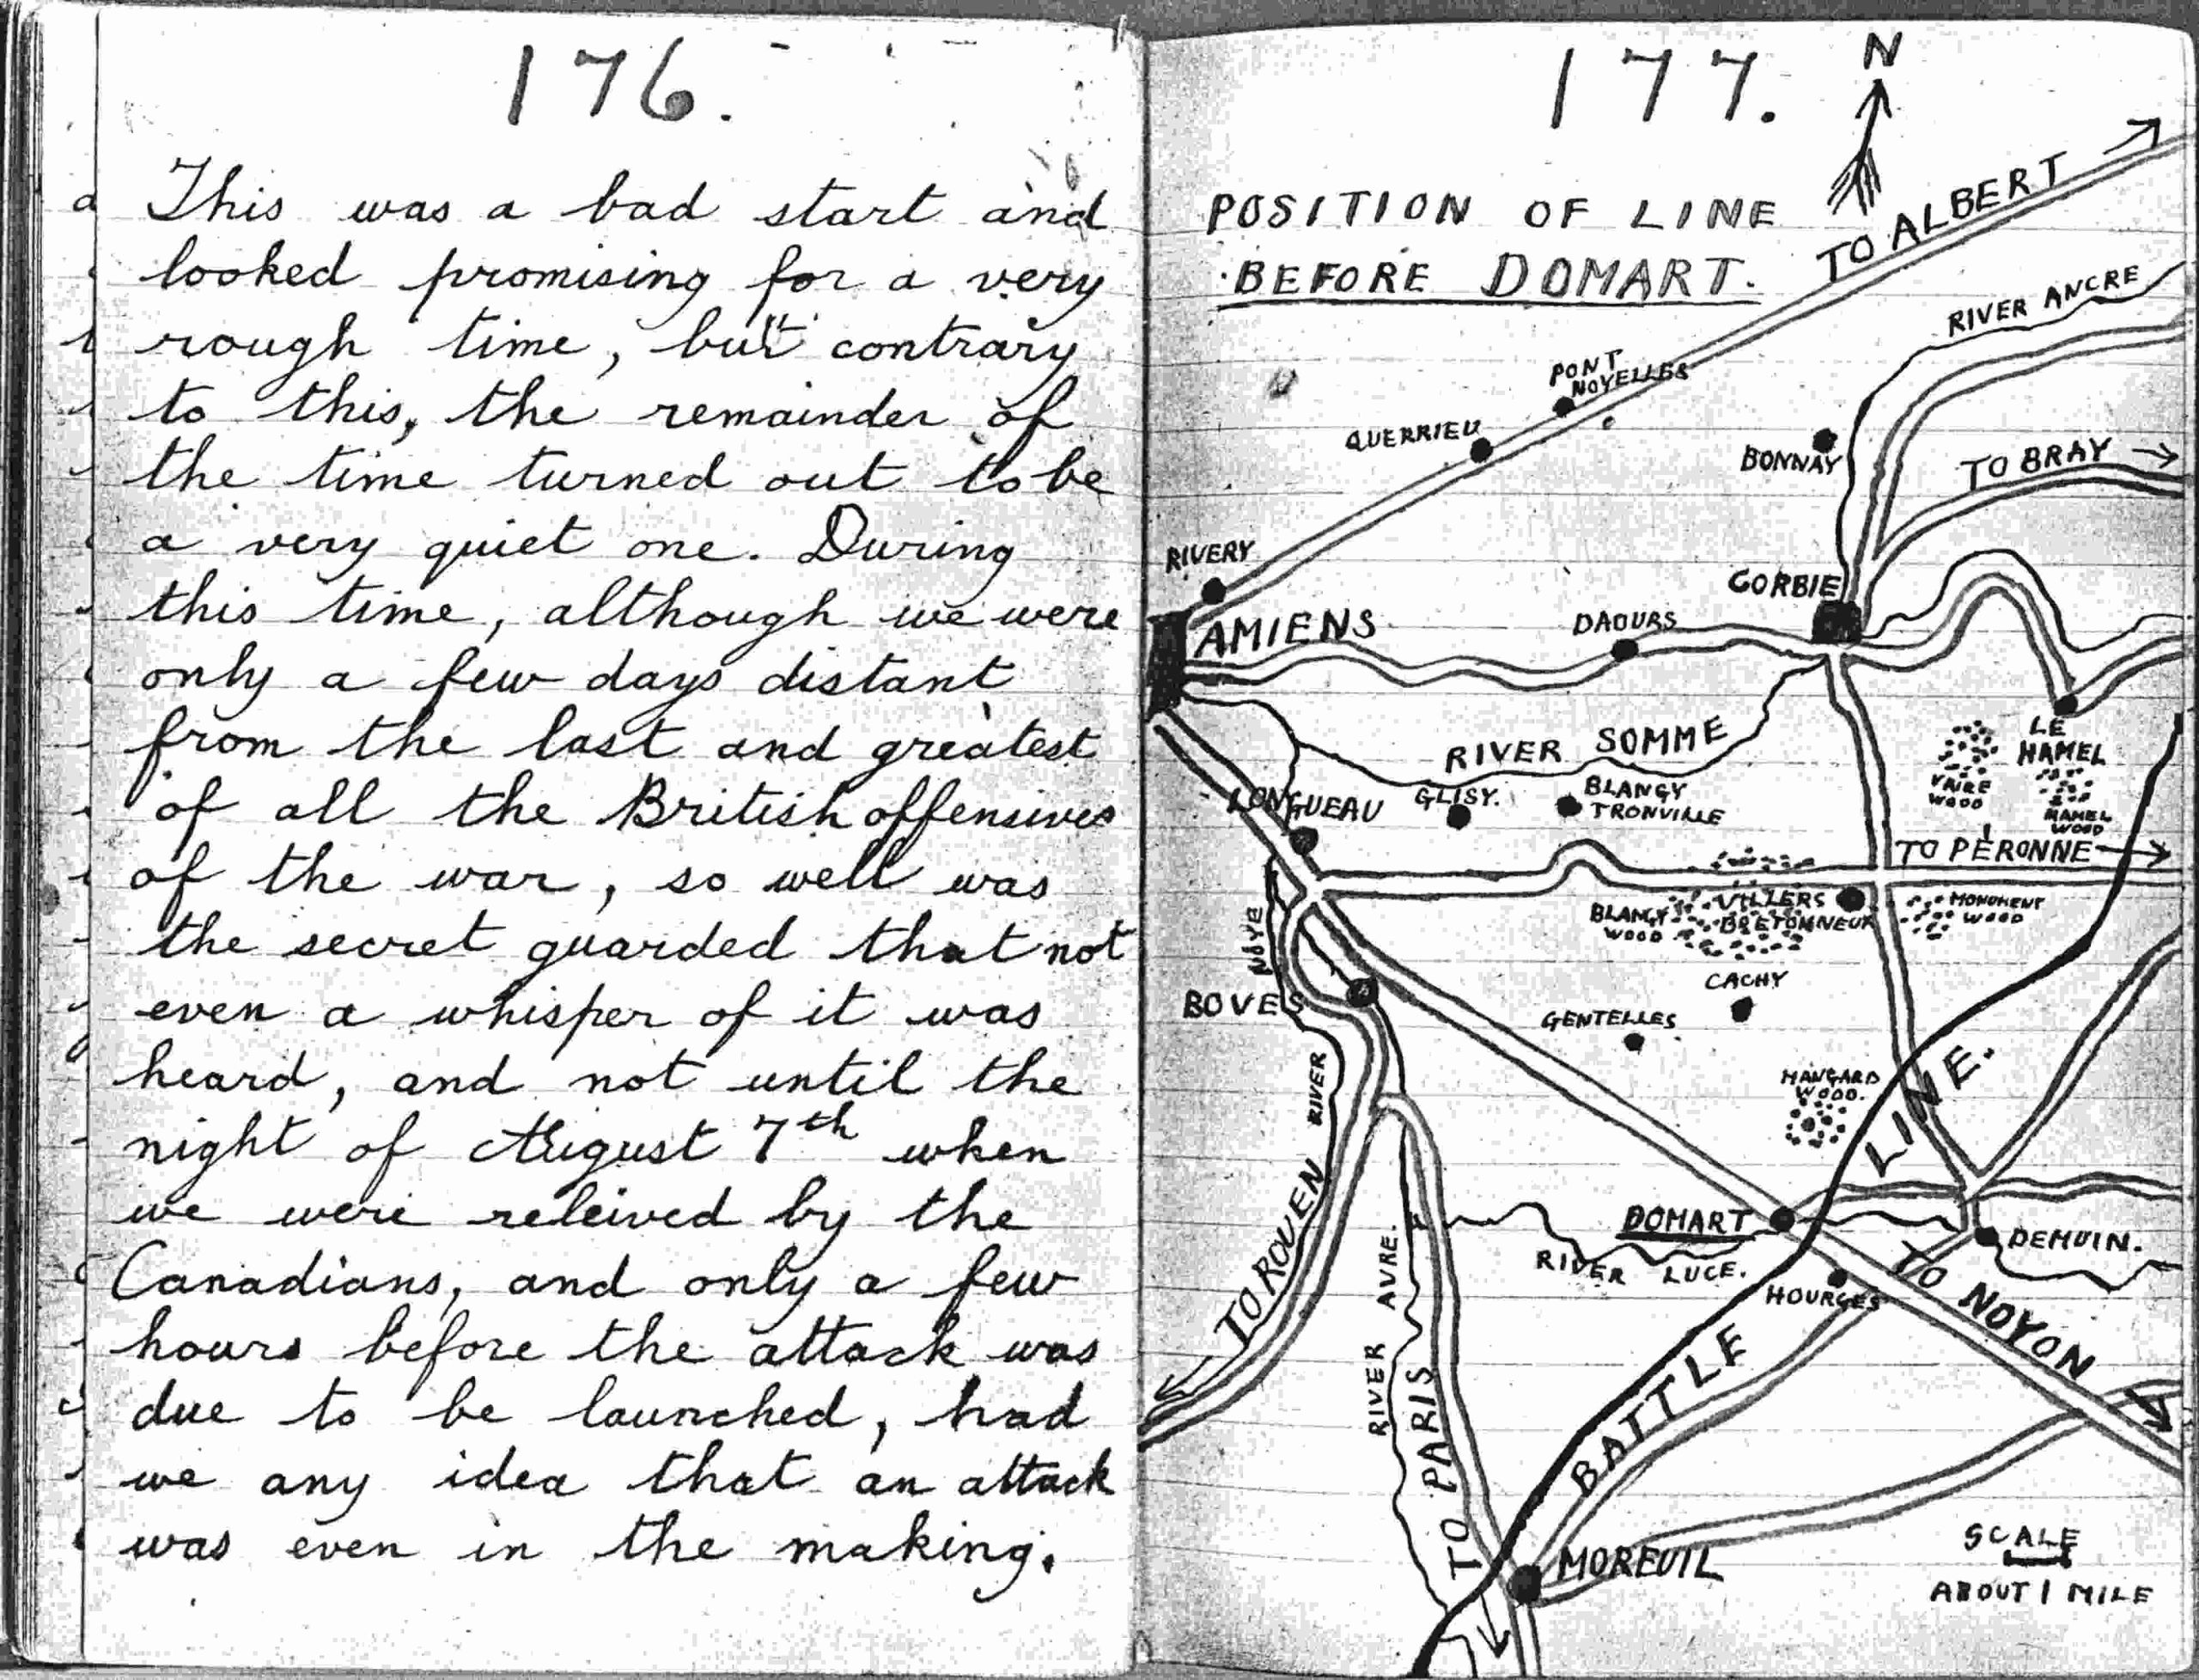 176.
This was a bad start and
looked promising for a very
rough time, but contrary
to this, the remainder of
the time turned out to be
a very quiet one. During
this time, although we were
only a few days distant
from the last and greatest
of all the British offensives
of the war, so well was
the secret guarded that not
even a whisper of it was
heard, and not until the
night of August 7th when
we were releived by the
Canadians, and only a few
hours before the attack was
due to be launched, had
we any idea that an attack
was even in the making.
177.
N
POSITION OF LINE
BEFORE DOMART.
TO ALBERT
RIVER ANCRE
PONT
NOYELLES
QUERRIEU
BONNAY
TO BRAY
RIVERY
CORBIE
AMIENS
DAOURS
RIVER SOMME
LE
HAMEL
VAIRE
WOOD
HAMEL
WOOD
LONGUEAU
GLISY.
BLANGY
TRONVILLE
TO PERONNE
VILLERS
BRETONNEUX
BLANGY
WOOD
MONUMENT
WOOD
NOYE
RIVER
BOVES
CACHY
GENTELLES
HANGARD
WOOD.
BATTLE LINE.
DOMART
DEMUIN.
RIVER LUCE.
HOURGES
TO NOYON
TO ROUEN
RIVER AVRE.
TO PARIS
MOREUIL
SCALE
ABOUT 1 MILE